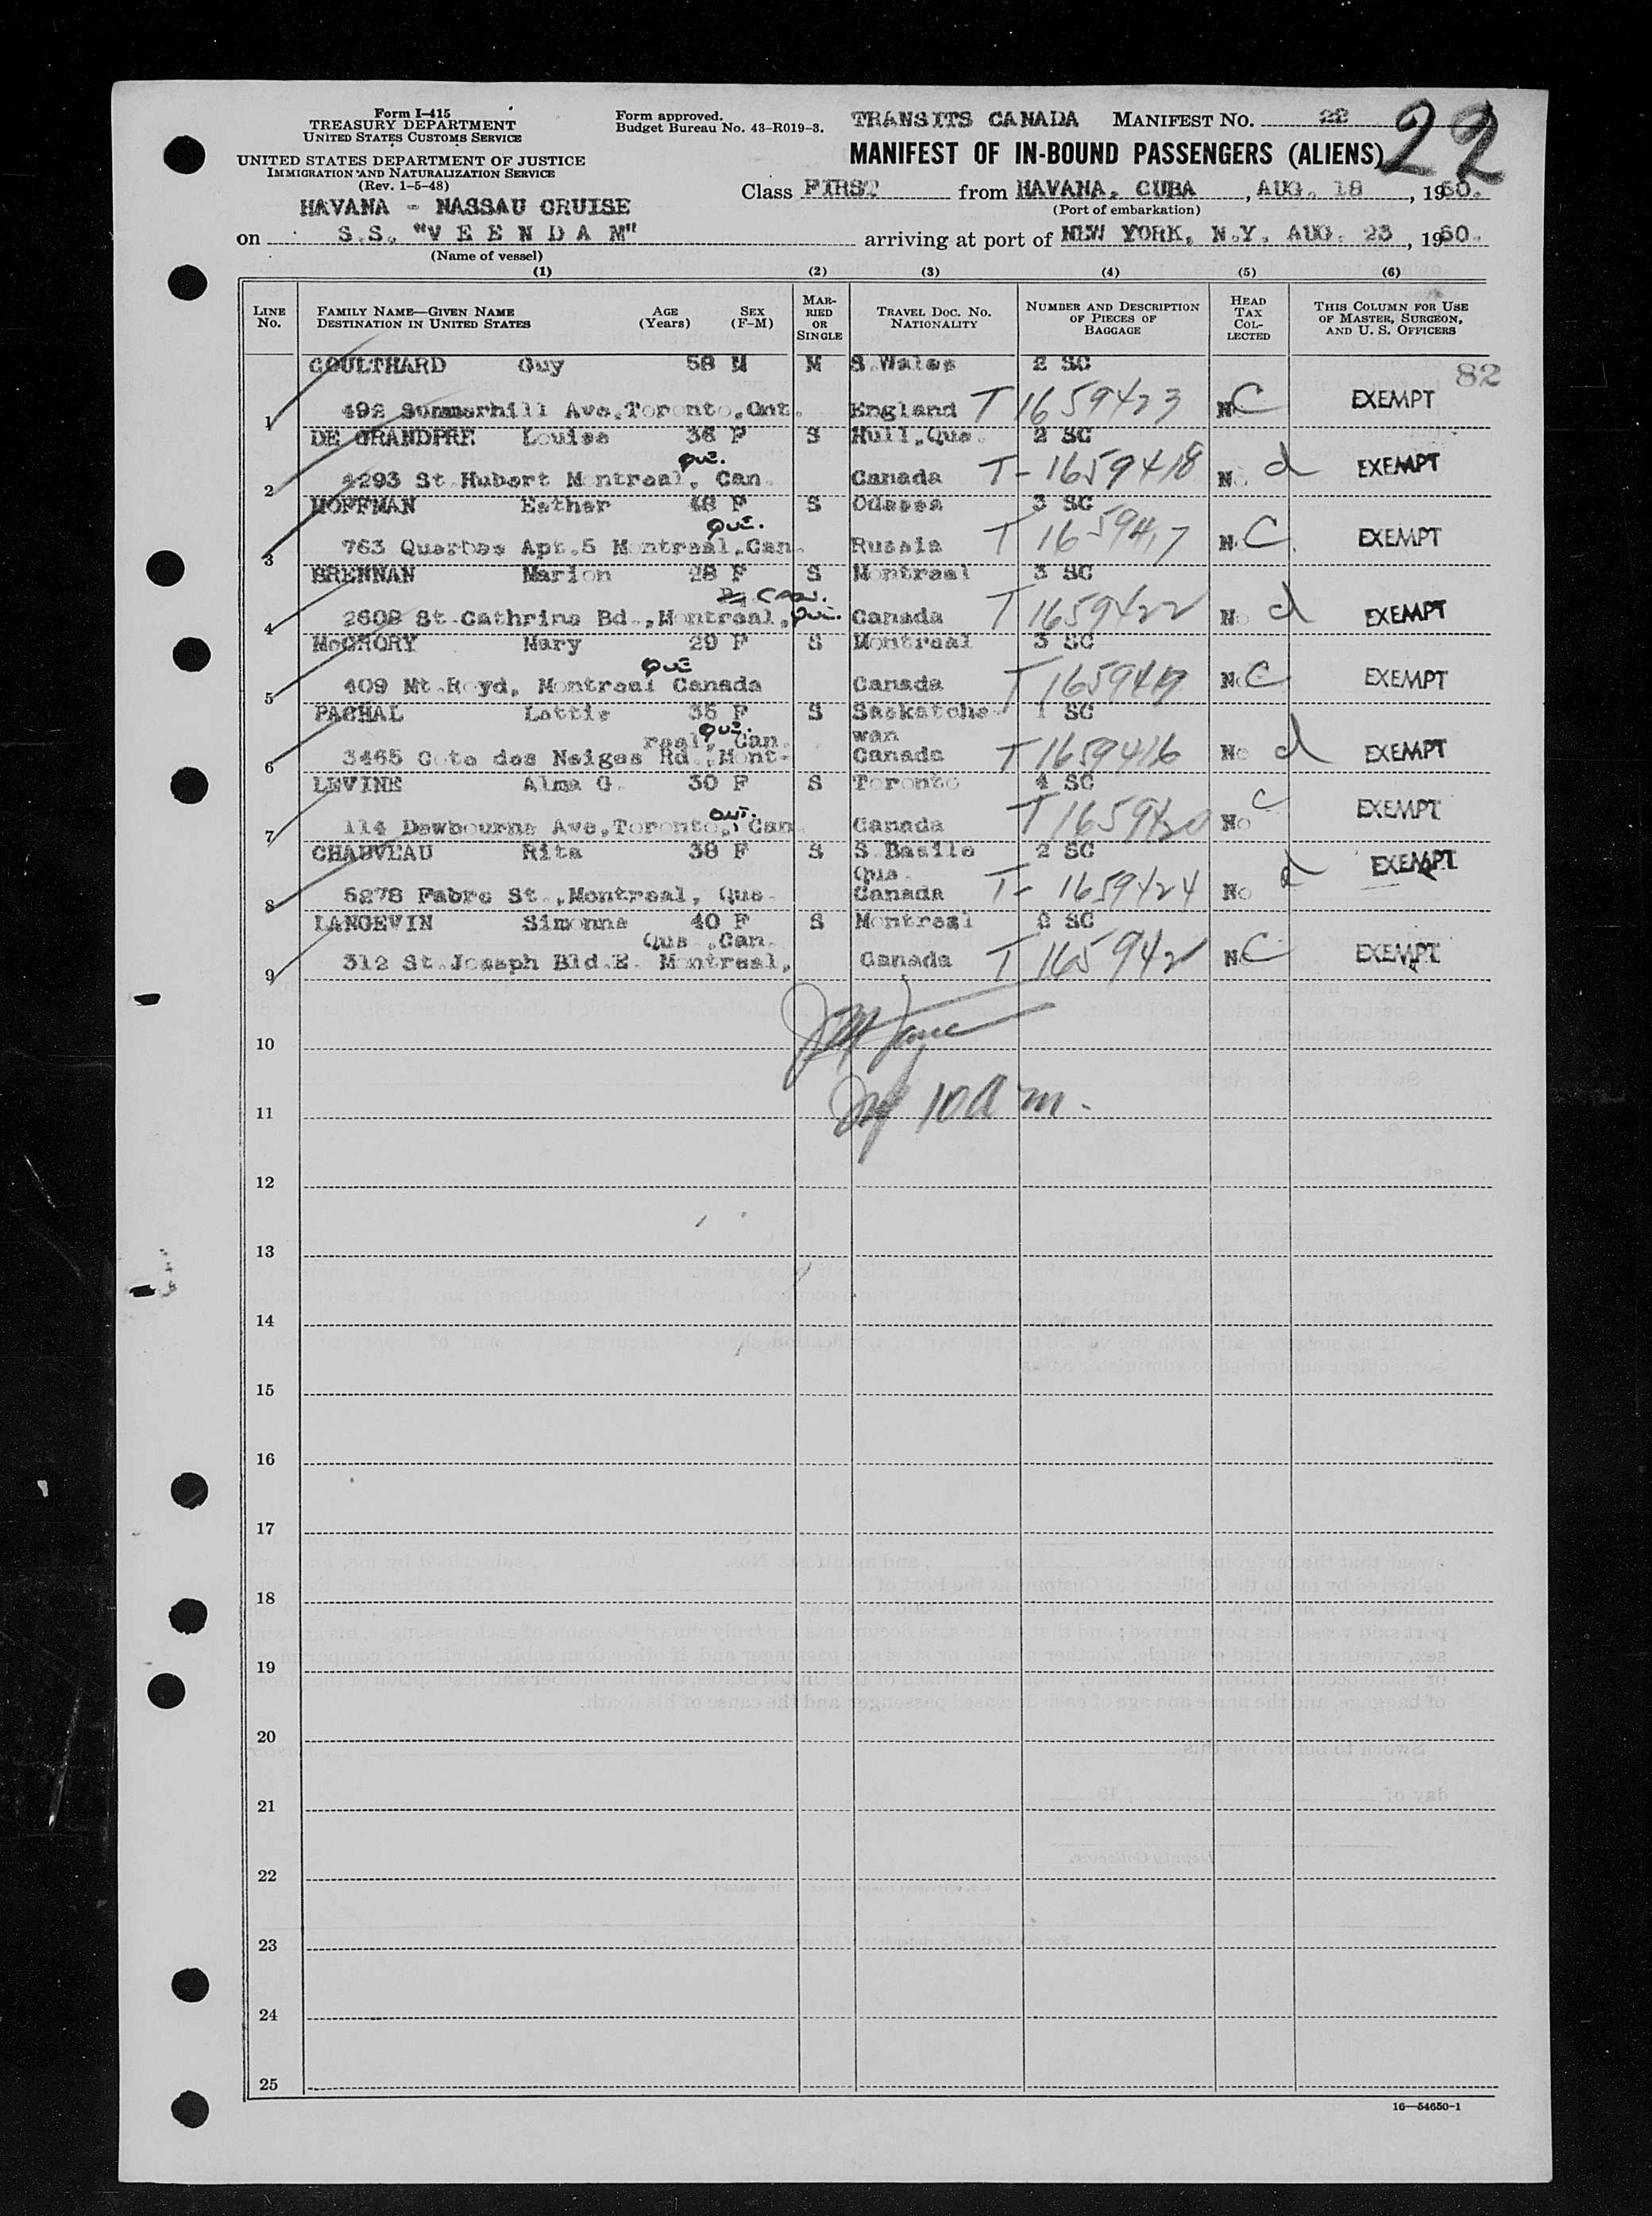 Form I-415
TREASURY DEPARTMENT
UNITED STATES CUSTOMS SERVICE
UNITED STATES DEPARTMENT OF JUSTICE
IMMIGRATION AND NATURALIZATION SERVICE
(Rev. 1-5-48)
Form approved.
Budget Bureau No. 43-R019-3.
TRANSITS CANADA MANIFEST NO. 22
22
MANIFEST OF IN-BOUND PASSENGERS (ALIENS)
Class FIRST from HAVANA, CUBA, AUG. 18, 1950.
(Port of embarkation)
HAVANA - NASSAU CRUISE
on S.S. "V E E N D A M" arriving at port of NEW YORK, N.Y. AUG. 23, 1950.
(Name of vessel)
(1) (2) (3) (4) (5) (6)
LINE No. FAMILY NAME—GIVEN NAME DESTINATION IN UNITED STATES AGE (Years) SEX (F-M) MARRIED OR SINGLE TRAVEL DOC. NO. NATIONALITY NUMBER AND DESCRIPTION OF PIECES OF BAGGAGE HEAD TAX COLLECTED THIS COLUMN FOR USE OF MASTER, SURGEON, AND U. S. OFFICERS
82
COULTHARD Guy 58 M M S.Wales 2 SC
1 492 Summerhill Ave,Toronto,Ont. England T 1659423 No C EXEMPT
DE GRANDPRE Louise 36 F S Hull,Que. 2 SC
QUE.
2 4293 St.Hubert Montreal, Can. Canada T-1659418 No d EXEMPT
HOFFMAN Esther 48 F S Odessa 3 SC
QUE.
3 763 Querbes Apt.5 Montreal,Can. Russia T 1659417 No C EXEMPT
BRENNAN Marion 28 F S Montreal 3 SC
CAN.
4 2608 St.Cathrine Bd.,Montreal,QUE. Canada T 1659422 No d EXEMPT
McCRORY Mary 29 F S Montreal 3 SC
QUE
5 409 Mt.Royd, Montreal Canada Canada T 1659419 No C EXEMPT
PACHAL Lottie 35 F S Saskatche 1 SC
QUE.
real, Can. wan
6 3465 Cote des Neiges Rd.,Mont- Canada T 1659416 No d EXEMPT
LEVINE Alma G. 30 F S Toronto 4 SC
ONT.
7 114 Dewbourne Ave,Toronto, Can. Canada T 1659420 No C EXEMPT
CHAUVEAU Rita 38 F S S.Basile 2 SC
Que.
8 5278 Fabre St.,Montreal, Que. Canada T-1659424 No d EXEMPT
LANGEVIN Simonne 40 F S Montreal 2 SC
Que.,Can.
9 312 St.Joseph Bld.E. Montreal, Canada T 1659421 No C EXEMPT
10
11 10 am.
12
13
14
15
16
17
18
19
20
21
22
23
24
25
16—54650-1